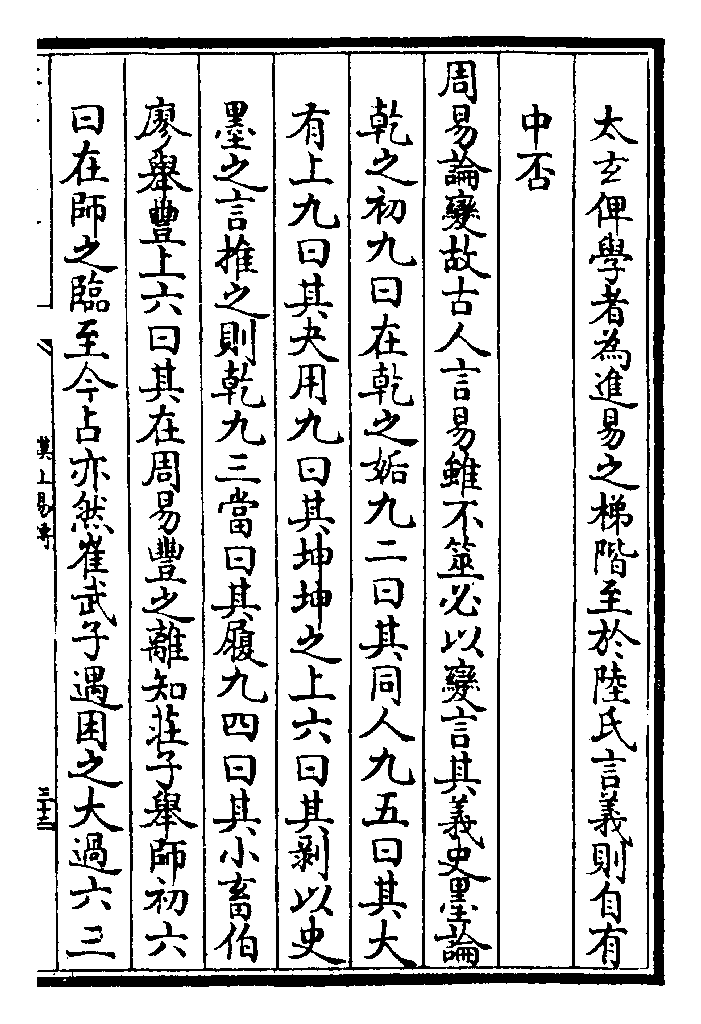 太玄俾學者為進易之梯階至於陸氏言義則自有
中否
周易論變故古人言易雖不筮必以變言其義史墨論
乾之初九曰在乾之姤九二曰其同人九五曰其大
有上九曰其夬用九曰其坤坤之上六曰其剝以史
墨之言推之則乾九三當曰其履九四曰其小畜伯
廖舉豐上六曰其在周易豐之離知莊子舉師初六
曰在師之臨至今占亦然崔武子遇困之大過六三
漢上易傳
三十三